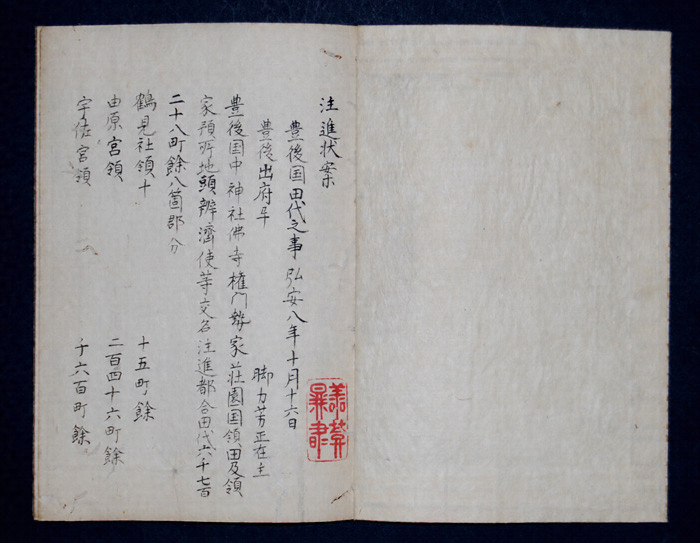 注進状案
豊後国田代之事 弘安八年十月十六日
豊後出府年 脚力芳正在主
豊後国中神社佛寺権門勢家荘園国領田及領
家預所地頭辨濟使等交名注進都合田代六千七百
二十八町餘八箇郡分
鶴見社領十 十五町餘
由原宮領 二百四十六町餘
宇佐宮領 千六百町餘